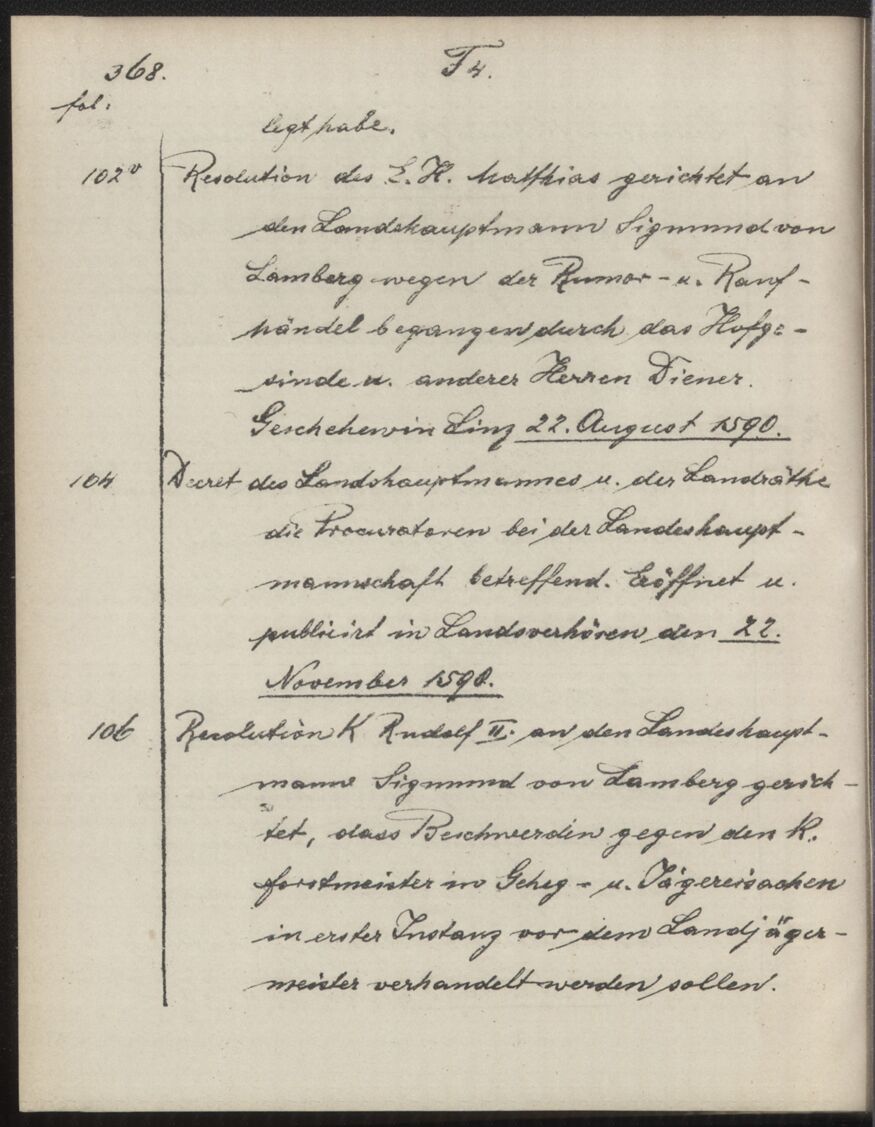 368.
F 4.
fol:
legt habe.
102v Resolution des E. H. Matthias gerichtet an
den Landshauptmann Sigmund von
Lamberg wegen der Rumor- u. Rauf-
händel begangen durch das Hofge-
sinde u. anderer Herren Diener.
Geschehen in Linz 22. August 1590.
104 Decret des Landshauptmannes u. der Landräthe
die Procuratoren bei der Landeshaupt-
mannschaft betreffend. Eröffnet u.
publicirt in Landsverhören den 22.
November 1590.
106 Resolution K Rudolf II. an den Landeshaupt-
mann Sigmund von Lamberg gerich-
tet, dass Beschwerden gegen den K.
forstmeister in Geheg- u. Jägereisachen
in erster Instanz vor dem Landjäger-
meister verhandelt werden sollen.